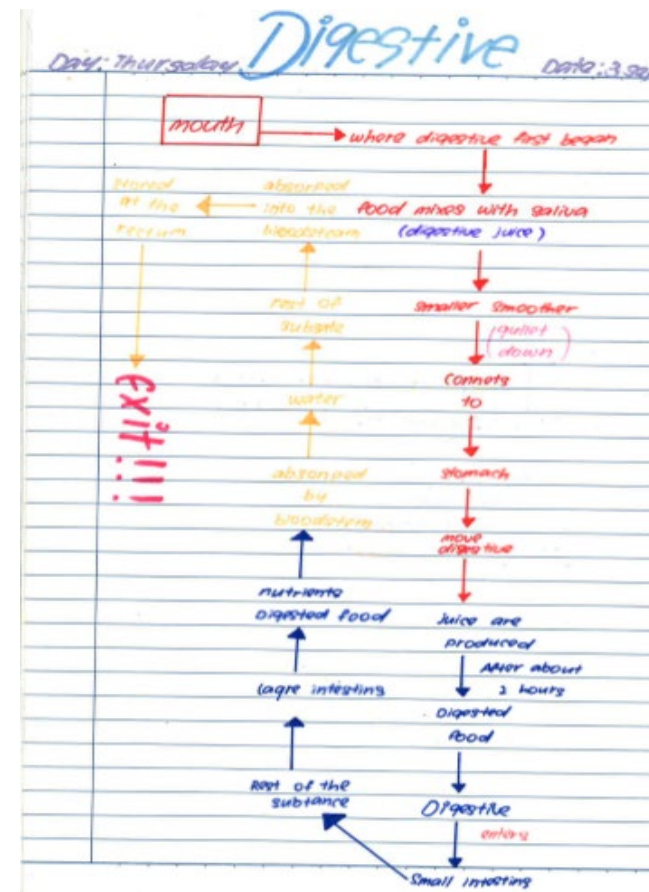 Digestive
Day: Thursday
Date: 3 Sep
mouth
where digestive first began
food mixes with saliva
(digestive juice)
smaller smoother
(gullet
down)
Connets
to
stomach
move
digestive
juice are
produced
After about
2 hours
Digested
food
Digestive
enters
Small intesting
Rest of the
subtance
lagre intesting
nutrients
Digested food
absorped
by
bloodsterm
water
rest of
absorped
into the
stored
at the
rectum
exit!!!